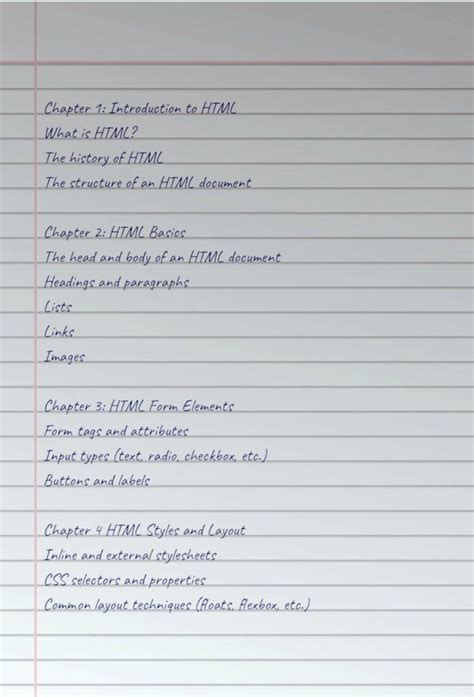 Chapter 1: Introduction to HTML
What is HTML?
The history of HTML
The structure of an HTML document
Chapter 2: HTML Basics
The head and body of an HTML document
Headings and paragraphs
Lists
Links
Images
Chapter 3: HTML Form Elements
Form tags and attributes
Input types (text, radio, checkbox, etc.)
Buttons and labels
Chapter 4 HTML Styles and Layout
Inline and external stylesheets
CSS selectors and properties
Common layout techniques (floats, flexbox, etc.)